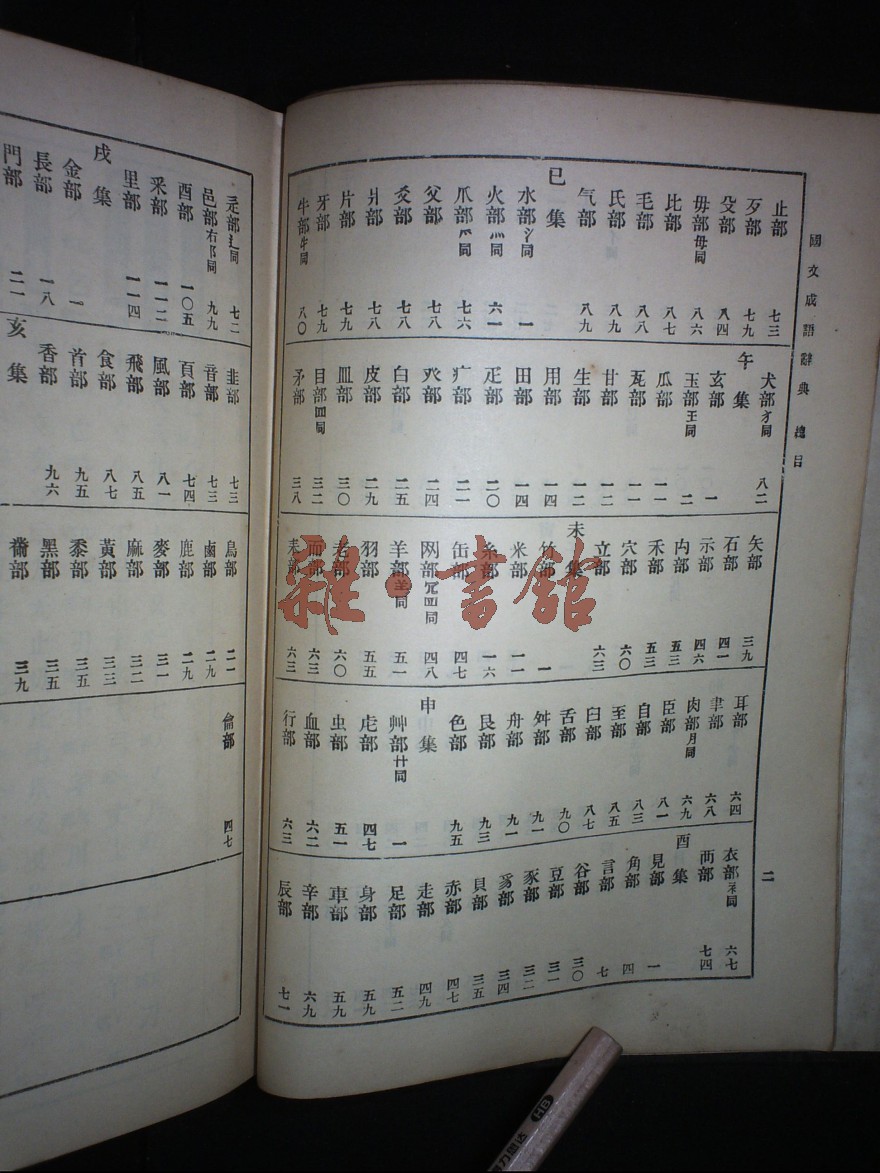 國文成語辭典 總目
二
止部 七三
歹部 七九
殳部 八四
毋部母同 八六
比部 八七
毛部 八八
氏部 八九
气部 八九
巳集
水部氵同 一
火部灬同 六一
爪部爫同 七六
父部 七八
爻部 七八
爿部 七八
片部 七九
牙部 七九
牛部牜同 八〇
犬部犭同 八二
午集
玄部 一
玉部王同 二
瓜部 一一
瓦部 一一
甘部 一二
生部 一二
用部 一四
田部 一四
疋部 二〇
疒部 二一
癶部 二四
白部 二五
皮部 二九
皿部 三〇
目部罒同 三二
矛部 三八
矢部 三九
石部 四一
示部 四六
禸部 五三
禾部 五三
穴部 六〇
立部 六三
未集
竹部 一
米部 一一
糸部 一六
缶部 四七
网部 同 四八
羊部 同 五一
羽部 五五
老部 六〇
而部 六三
耒部 六三
耳部 六四
聿部 六八
肉部月同 六九
臣部 八一
自部 八三
至部 八五
臼部 八七
舌部 九〇
舛部 九一
舟部 九一
艮部 九三
色部 九五
申集
艸部艹同 一
虍部 四七
虫部 五一
血部 六二
行部 六三
衣部衤同 六七
襾部 七四
酉集
見部 一
角部 四
言部 七
谷部 三〇
豆部 三一
豕部 三二
豸部 三四
貝部 三五
赤部 四七
走部 四九
足部 五二
身部 五九
車部 五九
辛部 六九
辰部 七一
辵部辶同 七二
邑部右阝同 九九
酉部 一〇五
釆部 一一二
里部 一一四
戌集
金部 一
長部 一八
門部 二一
韭部 七三
音部 七三
頁部 七四
風部 八一
飛部 八五
食部 八七
首部 九五
香部 九六
亥集
鳥部 二一
鹵部 二九
鹿部 二九
麥部 三一
麻部 三二
黃部 三三
黍部 三五
黑部 三五
黹部 三九
龠部 四七
雜·書館
HB